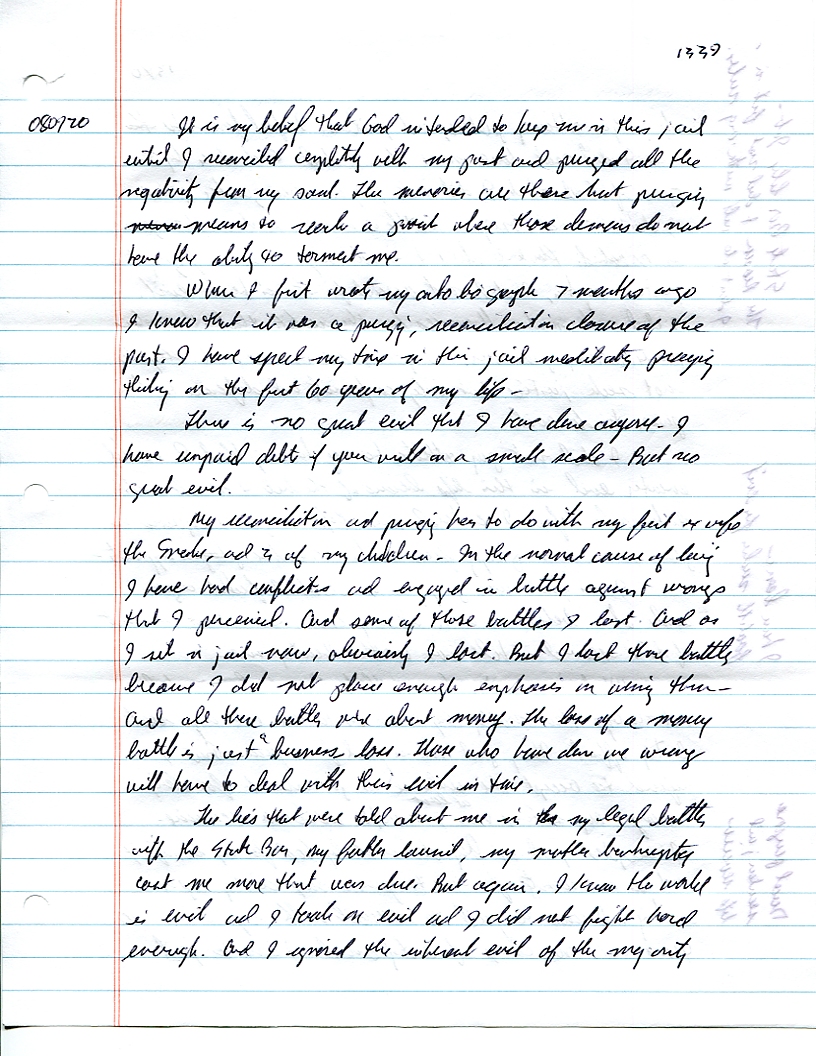 1339
080720
It is my belief that God intended to keep me in this jail
until I reconciled completely with my past and purged all the
negativity from my soul. The memories are there but purging
means to reach a point where those demons do not
have the ability to torment me.
When I first wrote my autobiography 7 months ago
I knew that it was a purging, reconciliation closure of the
past. I have spent my time in this jail meditating purging
thinking on the first 60 years of my life -
There is no great evil that I have done anyone - I
have unpaid debts if you will on a small scale - But no
great evil.
My reconciliation and purging has to do with my first ex wife
the and 2 of my children - In the normal course of living
I have had conflicts and engaged in battle against wrongs
that I perceived. And some of those battles I lost. And as
I sit in jail now, obviously I lost. But I lost those battles
because I did not place enough emphasis on winning them -
and all these battles were about money. The loss of a money
battle is just a business loss. Those who have done me wrong
will have to deal with their evil in time.
The lies that were told about me in my legal battles
with the State Bar, my , my bankruptcy
cost me more than was due. But again, I know the world
is evil and I took on evil and I did not fight hard
enough. And I ignored the inherent evil of the majority